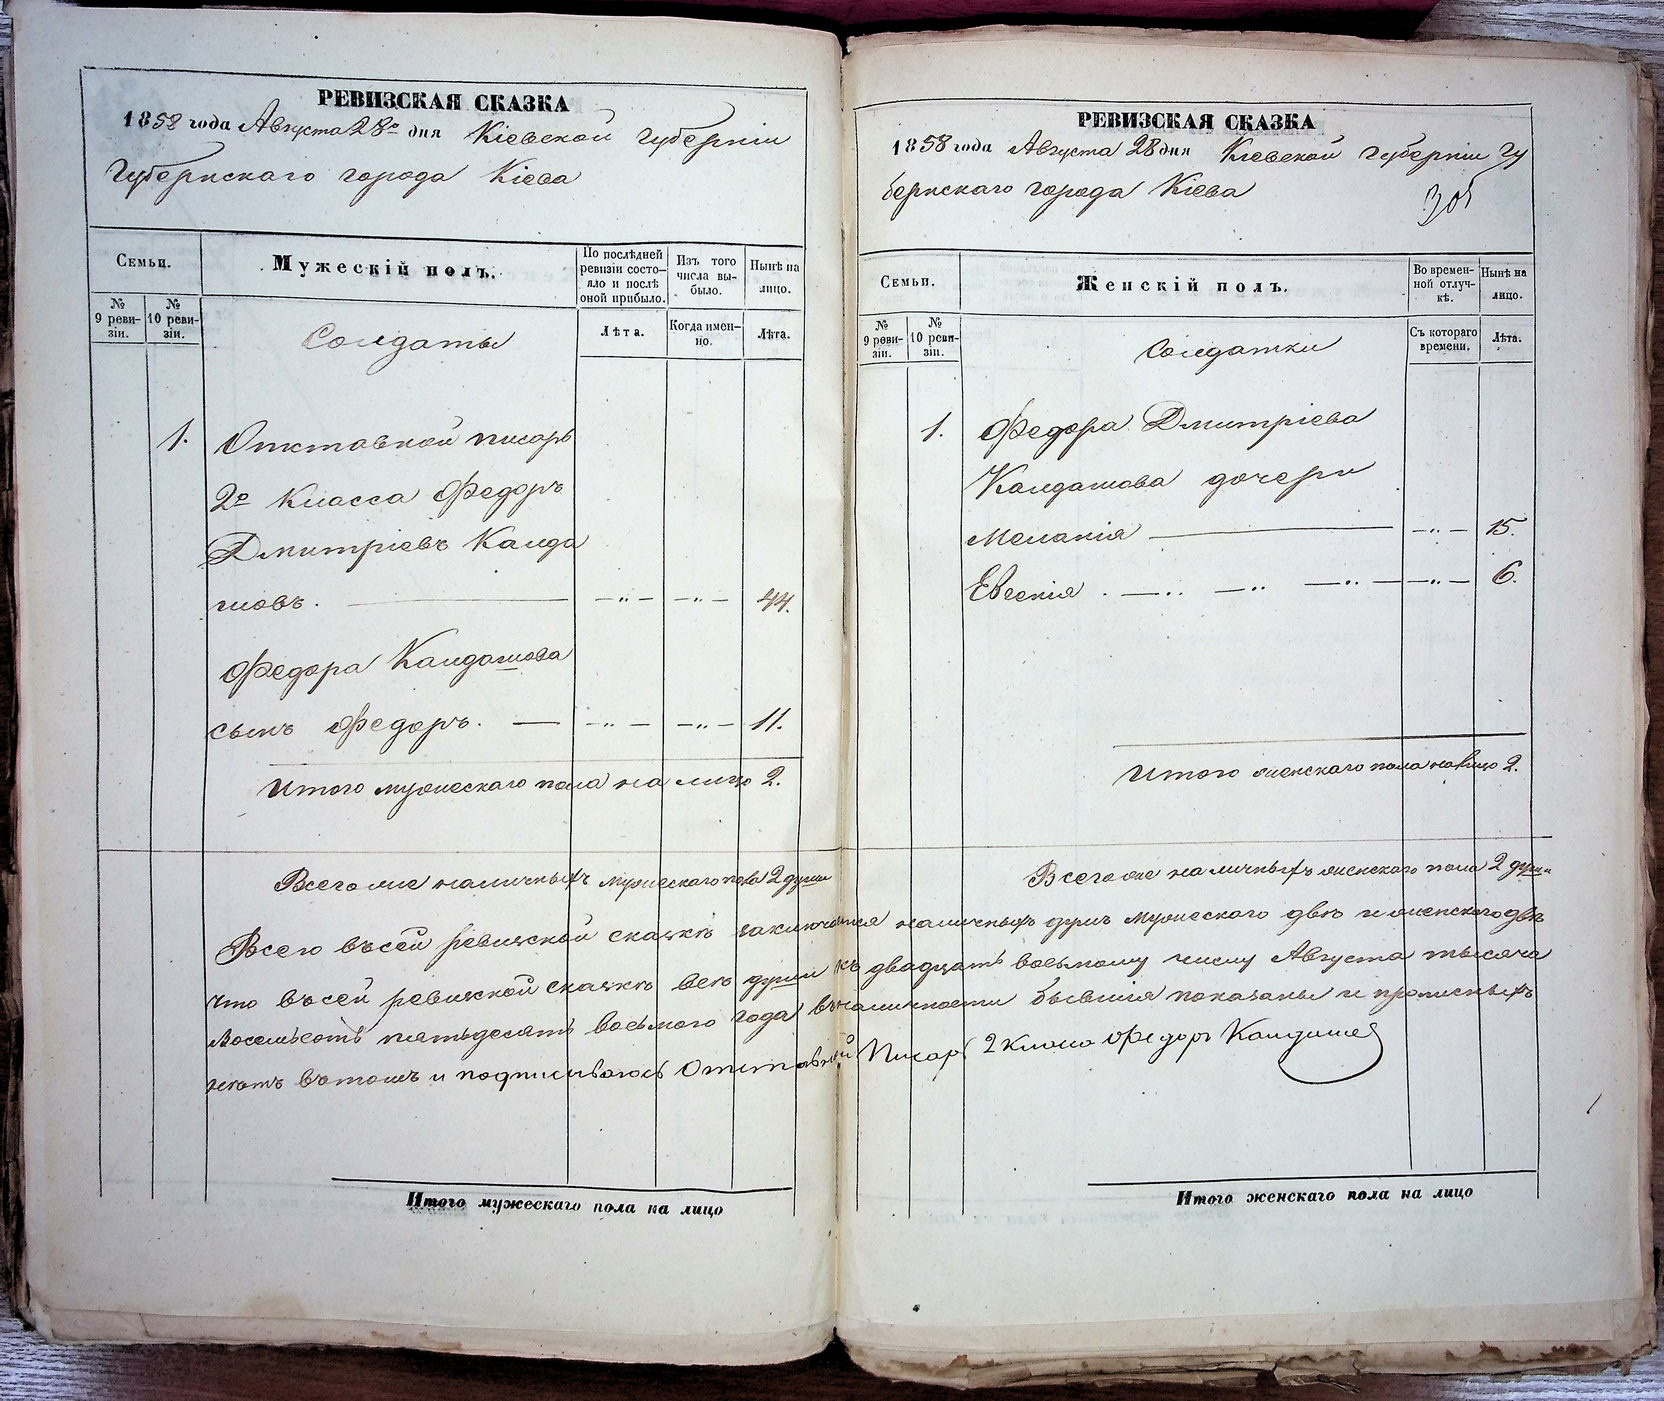 РЕВИЗСКАЯ СКАЗКА
1858 года Августа 28го дня Кіевской губерніи
Губернскаго города Кіева
Семьи.
№ 9 ревизіи.
№ 10 ревизіи.
Мужескій полъ.
По послѣдней ревизіи состояло и послѣ оной прибыло.
Изъ того числа выбыло.
Нынѣ на лицо.
Лѣта.
Когда именно.
Лѣта.
Солдаты
1. Отставной писарь
2го класса Федоръ
Дмитріевъ Калда
шовъ. — — „ — — „ — 44.
Федора Калдашова
сынъ Федоръ. — — „ — — „ — 11.
Итого мужескаго пола на лицо 2.
Всего же наличныхъ мужескаго пола 2 души
РЕВИЗСКАЯ СКАЗКА
1858 года Августа 28 дня Кіевской губерніи Гу
бернскаго города Кіева
305
Семьи.
№ 9 ревизіи.
№ 10 ревизіи.
Женскій полъ.
Во временной отлучкѣ.
Нынѣ на лицо.
Съ котораго времени.
Лѣта.
Солдатки
1. Федора Дмитріева
Калдашова дочери
Меланія — — „ — 15.
Евгенія . — „ — „ — „ — — „ — 6.
Итого женскаго пола налицо 2.
Всего же наличныхъ женскаго пола 2 души
Всего въ сей ревизской сказкѣ заключается наличныхъ душъ мужескаго двѣ и женскаго двѣ
что въ сей ревизской сказкѣ всѣ души къ двадцать восьмому числу Августа тысяча
восемьсотъ пятьдесятъ восьмого года въ наличности бывшія показаны и прописныхъ
нѣтъ въ томъ и подписываюсь Отставной Писарь 2 класа Федоръ Калдашев
Итого мужескаго пола на лицо
Итого женскаго пола на лицо